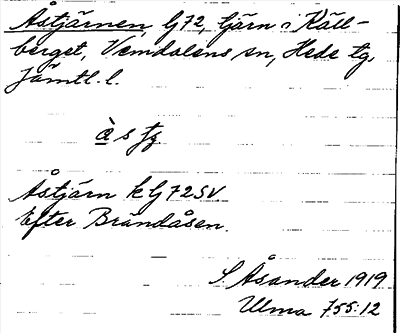 Åstjärnen, G72, tjärn i Käll-
berget, Vemdalens sn, Hede tg,
Jämtl. l.
Åstjärn k G72SV
Efter Brändåsen.
S. Åsander 1919
Ulma 755:12